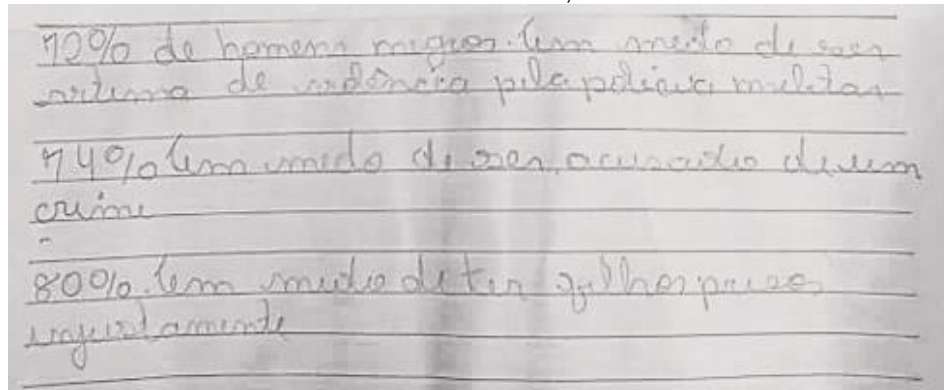 70% de homens negros tem medo de ser
vitima de violência pela policia militar
74% tem medo de ser acusado de um
crime
80% tem medo de ter filhos presos
injustamente